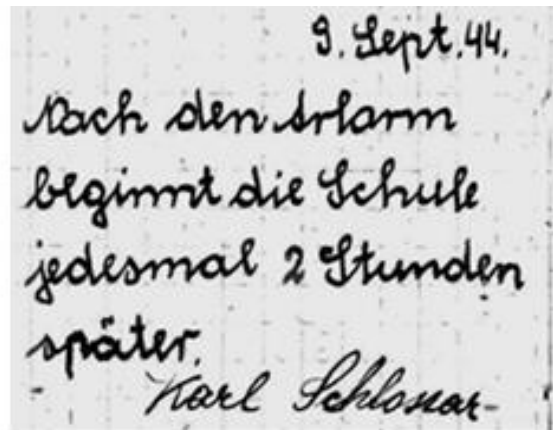 9. Sept. 44.
Nach den Arlarm
beginnt die Schule
jedesmal 2 Stunden
später.
Karl Schlossar